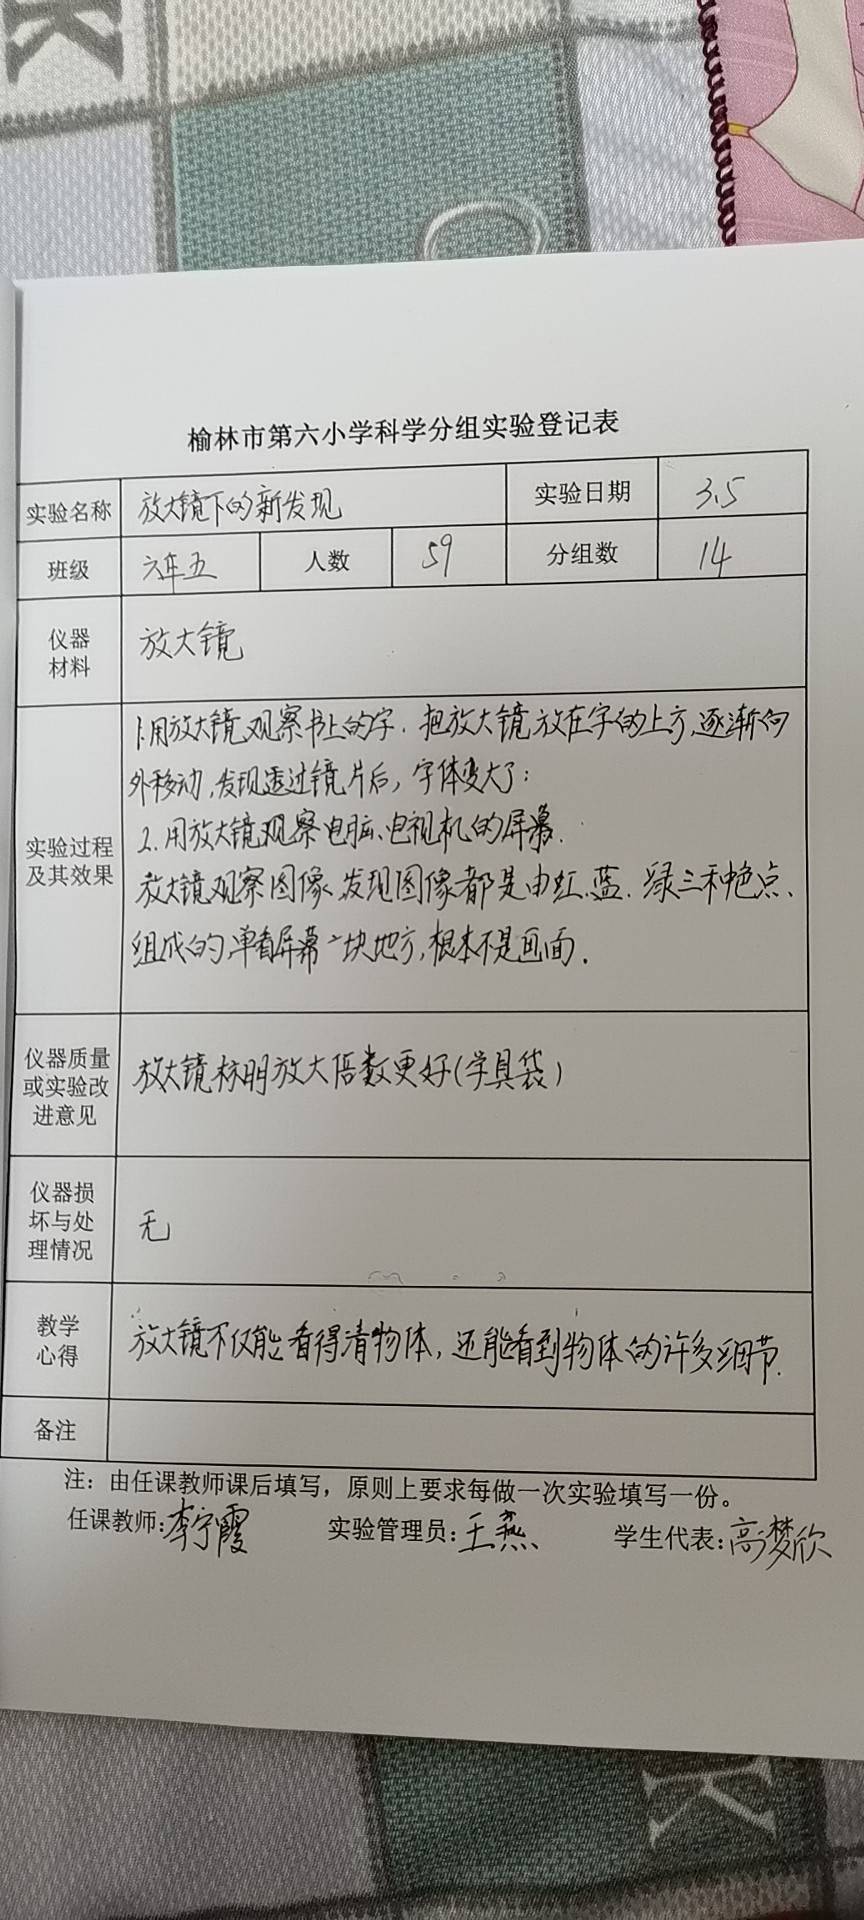 K
榆林市第六小学科学分组实验登记表
实验名称 放大镜下的新发现 实验日期 3.5
班级 六年五 人数 59 分组数 14
仪器
材料
放大镜
实验过程
及其效果
1.用放大镜观察书上的字.把放大镜放在字的上方,逐渐向
外移动,发现透过镜片后,字体变大了:
2.用放大镜观察电脑、电视机的屏幕.
放大镜观察图像、发现图像都是由红.蓝.绿三种色点、
组成的,单看屏幕一块地方,根本不是画面.
仪器质量
或实验改
进意见
放大镜标明放大倍数更好(学具袋)
仪器损
坏与处
理情况
无
教学
心得
放大镜不仅能看得清物体,还能看到物体的许多细节.
备注
注：由任课教师课后填写，原则上要求每做一次实验填写一份。
任课教师:李宁霞 实验管理员:王燕 学生代表:高梦欣
K